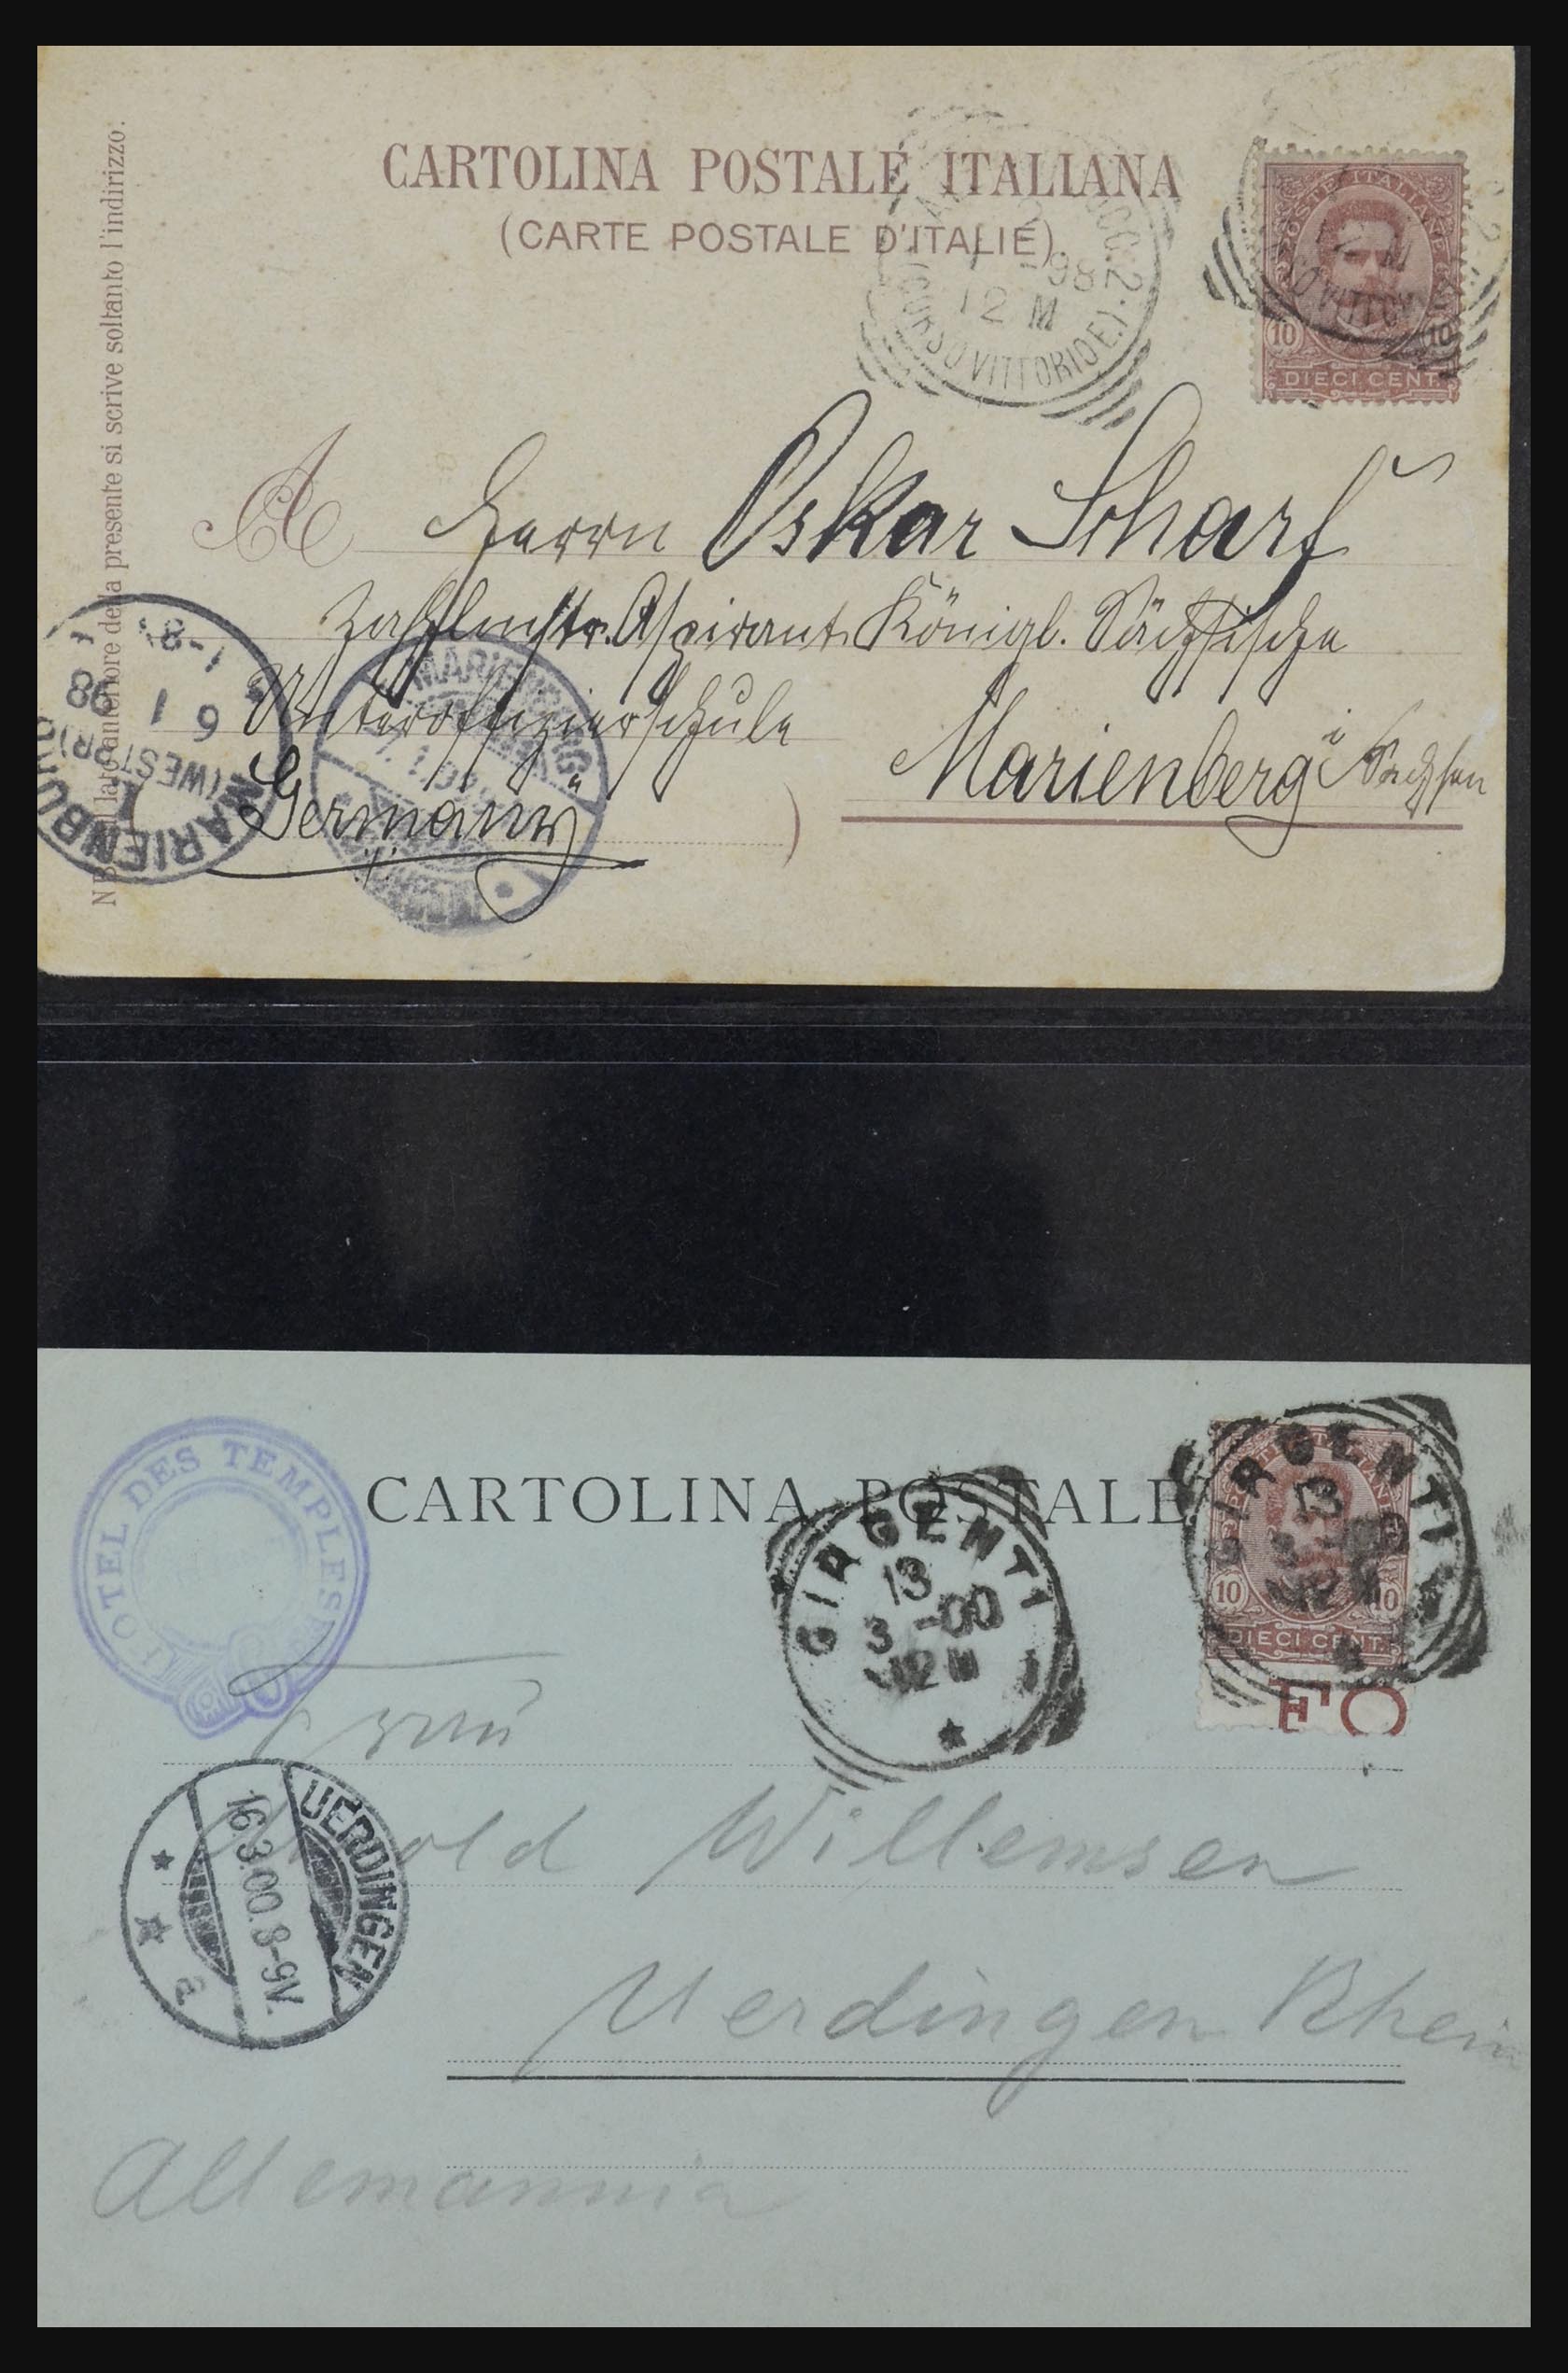 CARTOLINA POSTALE ITALIANA
(CARTE POSTALE D'ITALIE)
SUCC. 2
-98
12 M
(CORSO VITTORIO E.)
POSTE ITALIANE
12 M
10 10
DIECI CENT.
A Herrn Oskar Scharf
Zahlmstr. Aspirant. Königl. Sächsische
Unteroffizierschule
Marienberg i Sachsen
Germany
MARIENBERG
MARIENBURG
(WESTPR)
6 1 98
1-8V
lato anteriore della presente si scrive soltanto l'indirizzo.
HOTEL DES TEMPLES
CARTOLINA POSTALE
GIRGENTI
13
3 -00
12 M
GIRGENTI
13
10 10
DIECI CENT.
Frau
Willemsen
Uerdingen Rhein
Allemannia
UERDINGEN
16.3.00.8-9V.
a